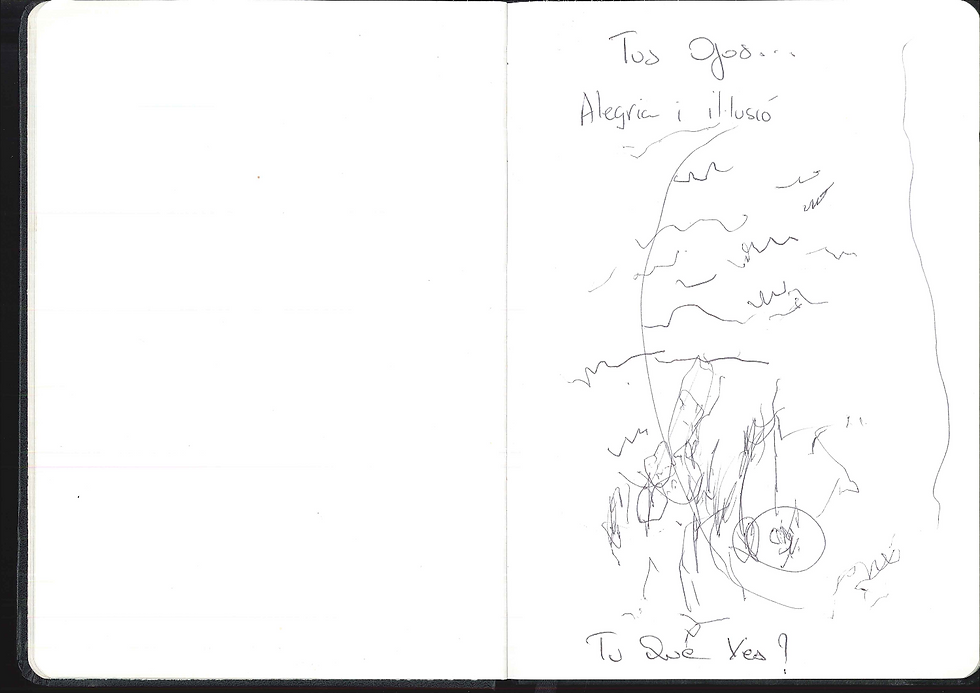 Tus Ojos...
Alegria i il·lusió
Tu Qué Ves?